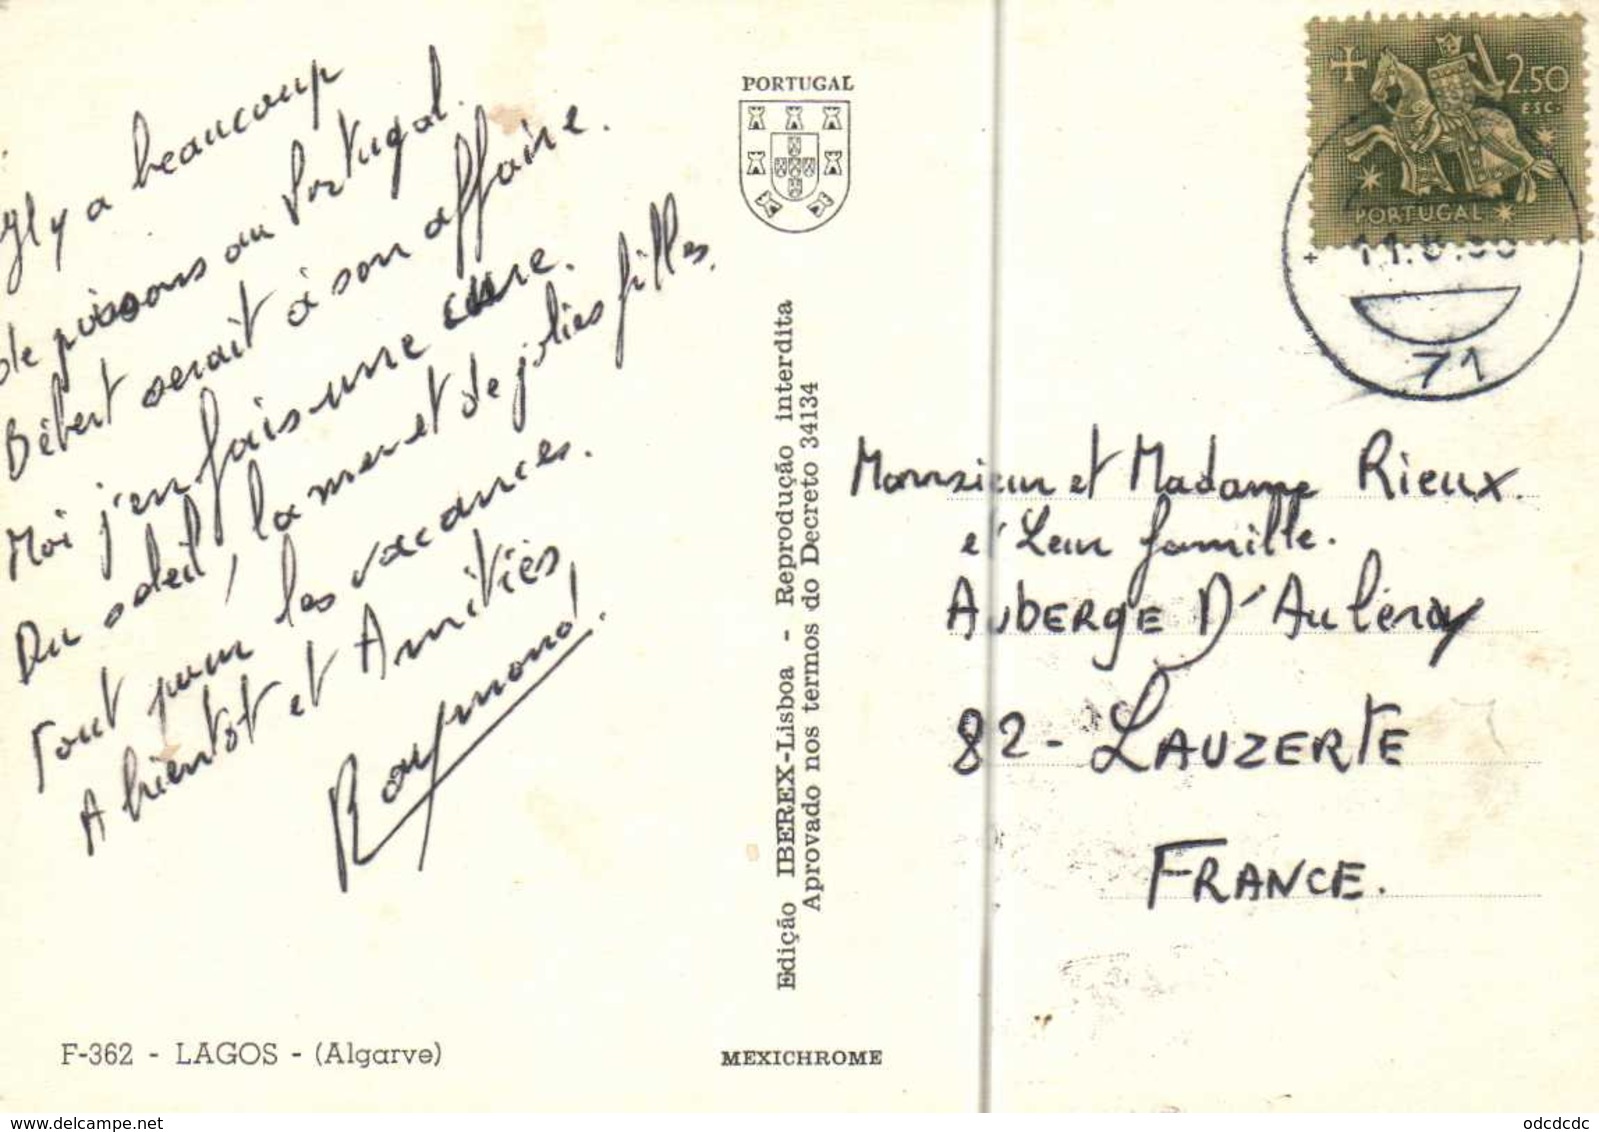 Il y a beaucoup
de poissons au Portugal.
Bébert serait à son affaire.
Moi j'en fais une cure.
Du soleil, la mer et de jolies filles.
Tout pour les vacances.
A bientôt et Amitiés,
Raymond
F-362 - LAGOS - (Algarve)
PORTUGAL
Edição IBEREX-Lisboa - Reprodução interdita
Aprovado nos termos do Decreto 34134
MEXICHROME
2.50
ESC.
PORTUGAL
71
Monsieur et Madame Rieux.
et Leur famille.
AUBERGE D'Auléry
82 - LAUZERTE
FRANCE.
www.delcampe.net
odcdcdc